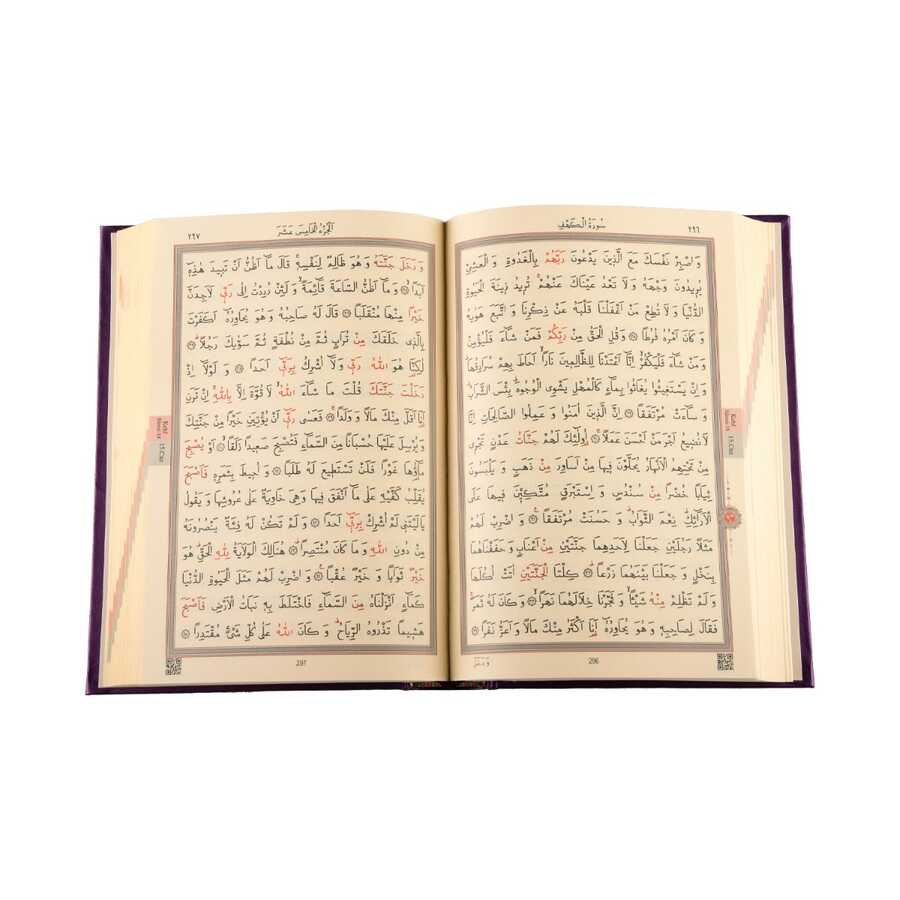 سُورَةُ الْكَهْفِ
٢٩٦
وَاصْبِرْ نَفْسَكَ مَعَ الَّذِينَ يَدْعُونَ رَبَّهُمْ بِالْغَدٰوةِ وَالْعَشِيِّ
يُرِيدُونَ وَجْهَهُ وَلَا تَعْدُ عَيْنَاكَ عَنْهُمْ تُرِيدُ زِينَةَ الْحَيٰوةِ
الدُّنْيَا وَلَا تُطِعْ مَنْ اَغْفَلْنَا قَلْبَهُ عَنْ ذِكْرِنَا وَاتَّبَعَ هَوٰيهُ
وَكَانَ اَمْرُهُ فُرُطًا ﴿٢٨﴾ وَقُلِ الْحَقُّ مِنْ رَبِّكُمْ فَمَنْ شَٓاءَ فَلْيُؤْمِنْ
وَمَنْ شَٓاءَ فَلْيَكْفُرْ اِنَّٓا اَعْتَدْنَا لِلظَّالِمِينَ نَارًا اَحَاطَ بِهِمْ سُرَادِقُهَا
وَاِنْ يَسْتَغِيثُوا يُغَاثُوا بِمَٓاءٍ كَالْمُهْلِ يَشْوِي الْوُجُوهَ بِئْسَ الشَّرَابُ
وَسَٓاءَتْ مُرْتَفَقًا ﴿٢٩﴾ اِنَّ الَّذِينَ اٰمَنُوا وَعَمِلُوا الصَّالِحَاتِ اِنَّا
لَا نُضِيعُ اَجْرَ مَنْ اَحْسَنَ عَمَلًا ﴿٣٠﴾ اُو۬لٰٓئِكَ لَهُمْ جَنَّاتُ عَدْنٍ تَجْرِي
مِنْ تَحْتِهِمُ الْاَنْهَارُ يُحَلَّوْنَ فِيهَا مِنْ اَسَاوِرَ مِنْ ذَهَبٍ وَيَلْبَسُونَ
ثِيَابًا خُضْرًا مِنْ سُنْدُسٍ وَاِسْتَبْرَقٍ مُتَّكِـِٔينَ فِيهَا عَلَى
الْاَرَٓائِكِ نِعْمَ الثَّوَابُ وَحَسُنَتْ مُرْتَفَقًا ﴿٣١﴾ وَاضْرِبْ لَهُمْ
مَثَلًا رَجُلَيْنِ جَعَلْنَا لِاَحَدِهِمَا جَنَّتَيْنِ مِنْ اَعْنَابٍ وَحَفَفْنَاهُمَا
بِنَخْلٍ وَجَعَلْنَا بَيْنَهُمَا زَرْعًا ﴿٣٢﴾ كِلْتَا الْجَنَّتَيْنِ اٰتَتْ اُكُلَهَا
وَلَمْ تَظْلِمْ مِنْهُ شَيْـًٔا وَفَجَّرْنَا خِلَالَهُمَا نَهَرًا ﴿٣٣﴾ وَكَانَ لَهُ ثَمَرٌ
فَقَالَ لِصَاحِبِهِ وَهُوَ يُحَاوِرُهُ اَنَا۬ اَكْثَرُ مِنْكَ مَالًا وَاَعَزُّ نَفَرًا ﴿٣٤﴾
وَدَخَلَ
296
Kehf
Sûresi 18
15.Cüz
٢٩٧
اَلْجُزْءُ الْخَامِسَ عَشَرَ
وَدَخَلَ جَنَّتَهُ وَهُوَ ظَالِمٌ لِنَفْسِهِ قَالَ مَٓا اَظُنُّ اَنْ تَبِيدَ هٰذِهِٓ
اَبَدًا ﴿٣٥﴾ وَمَٓا اَظُنُّ السَّاعَةَ قَٓائِمَةً وَلَئِنْ رُدِدْتُ اِلٰى رَبِّي لَاَجِدَنَّ
خَيْرًا مِنْهَا مُنْقَلَبًا ﴿٣٦﴾ قَالَ لَهُ صَاحِبُهُ وَهُوَ يُحَاوِرُهُٓ اَكَفَرْتَ
بِالَّذِي خَلَقَكَ مِنْ تُرَابٍ ثُمَّ مِنْ نُطْفَةٍ ثُمَّ سَوّٰيكَ رَجُلًا ﴿٣٧﴾
لٰكِنَّا۬ هُوَ اللّٰهُ رَبِّي وَلَٓا اُشْرِكُ بِرَبِّٓي اَحَدًا ﴿٣٨﴾ وَلَوْلَٓا اِذْ
دَخَلْتَ جَنَّتَكَ قُلْتَ مَا شَٓاءَ اللّٰهُ لَا قُوَّةَ اِلَّا بِاللّٰهِ اِنْ تَرَنِ
اَنَا۬ اَقَلَّ مِنْكَ مَالًا وَوَلَدًا ﴿٣٩﴾ فَعَسٰى رَبِّٓي اَنْ يُؤْتِيَنِ خَيْرًا مِنْ جَنَّتِكَ
وَيُرْسِلَ عَلَيْهَا حُسْبَانًا مِنَ السَّمَٓاءِ فَتُصْبِحَ صَعِيدًا زَلَقًا ﴿٤٠﴾ اَوْ يُصْبِحَ
مَٓاؤُ۬هَا غَوْرًا فَلَنْ تَسْتَطِيعَ لَهُ طَلَبًا ﴿٤١﴾ وَاُحِيطَ بِثَمَرِهِ فَاَصْبَحَ
يُقَلِّبُ كَفَّيْهِ عَلٰى مَٓا اَنْفَقَ فِيهَا وَهِيَ خَاوِيَةٌ عَلٰى عُرُوشِهَا وَيَقُولُ
يَا لَيْتَنِي لَمْ اُشْرِكْ بِرَبِّٓي اَحَدًا ﴿٤٢﴾ وَلَمْ تَكُنْ لَهُ فِئَةٌ يَنْصُرُونَهُ
مِنْ دُونِ اللّٰهِ وَمَا كَانَ مُنْتَصِرًا ﴿٤٣﴾ هُنَالِكَ الْوَلَايَةُ لِلّٰهِ الْحَقِّ هُوَ
خَيْرٌ ثَوَابًا وَخَيْرٌ عُقْبًا ﴿٤٤﴾ وَاضْرِبْ لَهُمْ مَثَلَ الْحَيٰوةِ الدُّنْيَا
كَمَٓاءٍ اَنْزَلْنَاهُ مِنَ السَّمَٓاءِ فَاخْتَلَطَ بِهِ نَبَاتُ الْاَرْضِ فَاَصْبَحَ
هَشِيمًا تَذْرُوهُ الرِّيَاحُ وَكَانَ اللّٰهُ عَلٰى كُلِّ شَيْءٍ مُقْتَدِرًا ﴿٤٥﴾
297
Kehf
Sûresi 18
15.Cüz